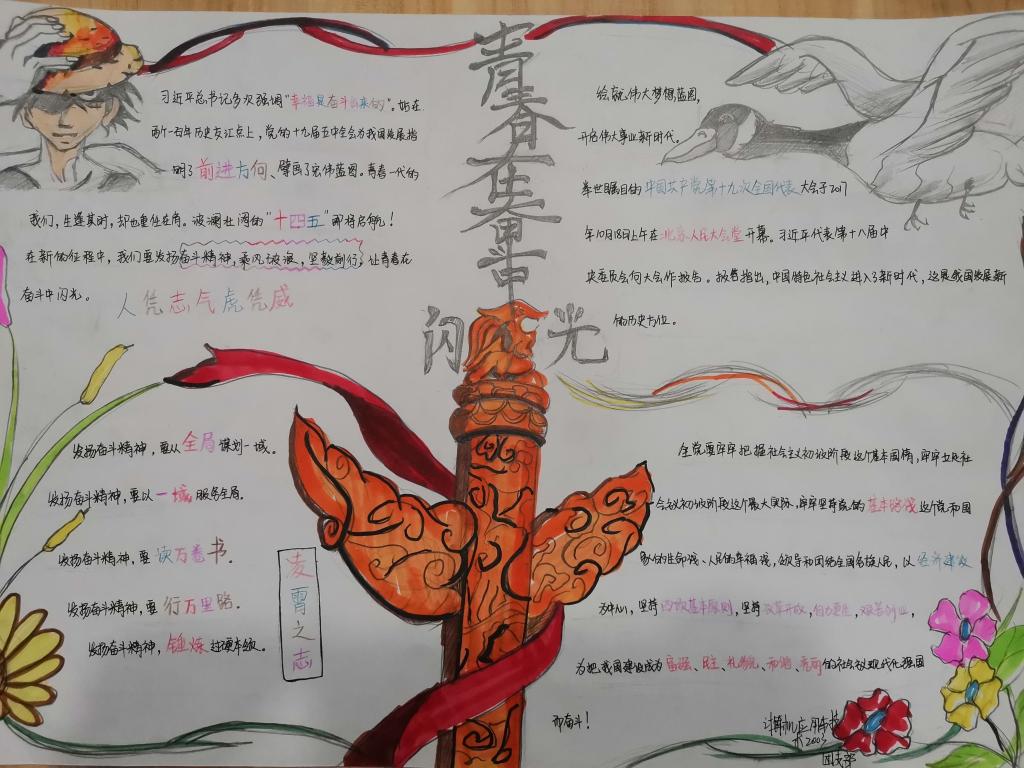 青春在奋斗中
闪光
习近平总书记多次强调“幸福是奋斗出来的”。站在
两个一百年历史交汇点上，党的十九届五中全会为我国发展指
明了前进方向、擘画了宏伟蓝图。青春一代的
我们，生逢其时，却也重任在肩。波澜壮阔的“十四五”即将启航！
在新的征程中，我们要发扬奋斗精神，乘风破浪，坚毅前行，让青春在
奋斗中闪光。
人凭志气虎凭威
绘就伟大梦想蓝图，
开启伟大事业新时代。
举世瞩目的中国共产党第十九次全国代表大会于2017
年10月18日上午在北京人民大会堂开幕。习近平代表第十八届中
央委员会向大会作报告。报告指出，中国特色社会主义进入了新时代，这是我国发展新
的历史方位。
发扬奋斗精神，要从全局谋划一域。
发扬奋斗精神，要以一域服务全局。
发扬奋斗精神，要读万卷书。
发扬奋斗精神，要行万里路。
发扬奋斗精神，锤炼过硬本领。
凌霄之志
全党要牢牢把握社会主义初级阶段这个基本国情，牢牢立足社
会主义初级阶段这个最大实际，牢牢坚持党的基本路线这个党和国
家的生命线、人民的幸福线，领导和团结全国各族人民，以经济建设
为中心，坚持四项基本原则，坚持改革开放，自力更生，艰苦创业，
为把我国建设成为富强、民主、文明、和谐、美丽的社会主义现代化强国
而奋斗！
计算机应用技
术2003
团支部